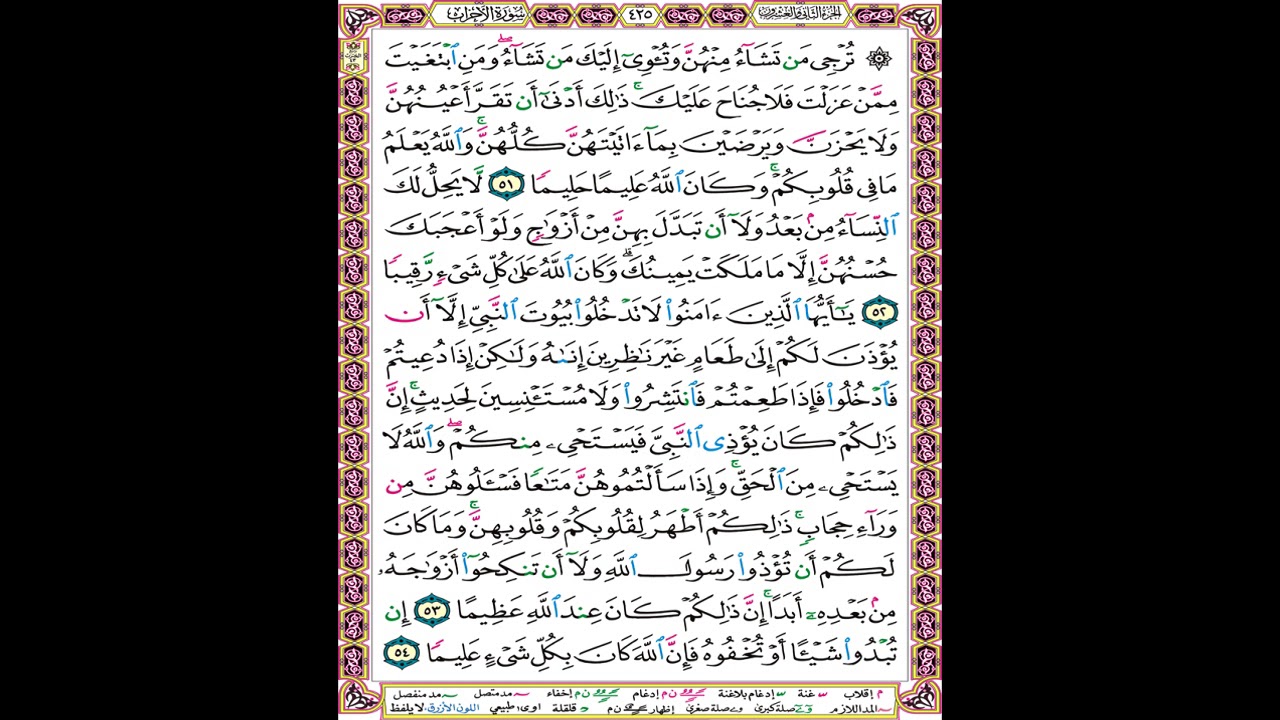 الجزء الثاني والعشرون
٤٢٥
سورة الأحزاب
۞ تُرْجِى مَن تَشَآءُ مِنْهُنَّ وَتُـْٔوِىٓ إِلَيْكَ مَن تَشَآءُ ۖ وَمَنِ ٱبْتَغَيْتَ
مِمَّنْ عَزَلْتَ فَلَا جُنَاحَ عَلَيْكَ ۚ ذَٰلِكَ أَدْنَىٰٓ أَن تَقَرَّ أَعْيُنُهُنَّ
وَلَا يَحْزَنَّ وَيَرْضَيْنَ بِمَآ ءَاتَيْتَهُنَّ كُلُّهُنَّ ۚ وَٱللَّهُ يَعْلَمُ
مَا فِى قُلُوبِكُمْ ۚ وَكَانَ ٱللَّهُ عَلِيمًا حَلِيمًا ٥١ لَّا يَحِلُّ لَكَ
ٱلنِّسَآءُ مِنۢ بَعْدُ وَلَآ أَن تَبَدَّلَ بِهِنَّ مِنْ أَزْوَٰجٍ وَلَوْ أَعْجَبَكَ
حُسْنُهُنَّ إِلَّا مَا مَلَكَتْ يَمِينُكَ ۗ وَكَانَ ٱللَّهُ عَلَىٰ كُلِّ شَىْءٍ رَّقِيبًا
٥٢ يَـٰٓأَيُّهَا ٱلَّذِينَ ءَامَنُوا۟ لَا تَدْخُلُوا۟ بُيُوتَ ٱلنَّبِىِّ إِلَّآ أَن
يُؤْذَنَ لَكُمْ إِلَىٰ طَعَامٍ غَيْرَ نَـٰظِرِينَ إِنَىٰهُ وَلَـٰكِنْ إِذَا دُعِيتُمْ
فَٱدْخُلُوا۟ فَإِذَا طَعِمْتُمْ فَٱنتَشِرُوا۟ وَلَا مُسْتَـْٔنِسِينَ لِحَدِيثٍ ۚ إِنَّ
ذَٰلِكُمْ كَانَ يُؤْذِى ٱلنَّبِىَّ فَيَسْتَحْىِۦ مِنكُمْ ۖ وَٱللَّهُ لَا
يَسْتَحْىِۦ مِنَ ٱلْحَقِّ ۚ وَإِذَا سَأَلْتُمُوهُنَّ مَتَـٰعًا فَسْـَٔلُوهُنَّ مِن
وَرَآءِ حِجَابٍ ۚ ذَٰلِكُمْ أَطْهَرُ لِقُلُوبِكُمْ وَقُلُوبِهِنَّ ۚ وَمَا كَانَ
لَكُمْ أَن تُؤْذُوا۟ رَسُولَ ٱللَّهِ وَلَآ أَن تَنكِحُوٓا۟ أَزْوَٰجَهُۥ
مِنۢ بَعْدِهِۦٓ أَبَدًا ۚ إِنَّ ذَٰلِكُمْ كَانَ عِندَ ٱللَّهِ عَظِيمًا ٥٣ إِن
تُبْدُوا۟ شَيْـًٔا أَوْ تُخْفُوهُ فَإِنَّ ٱللَّهَ كَانَ بِكُلِّ شَىْءٍ عَلِيمًا ٥٤
م إقلاب غنة إدغام بلاغنة ن م إدغام ن م إخفاء مد متصل مد منفصل
المد اللازم صلة كبرى صلة صغرى إظهار ن م قلقلة طبيعي اللون الأزرق لا يلفظ